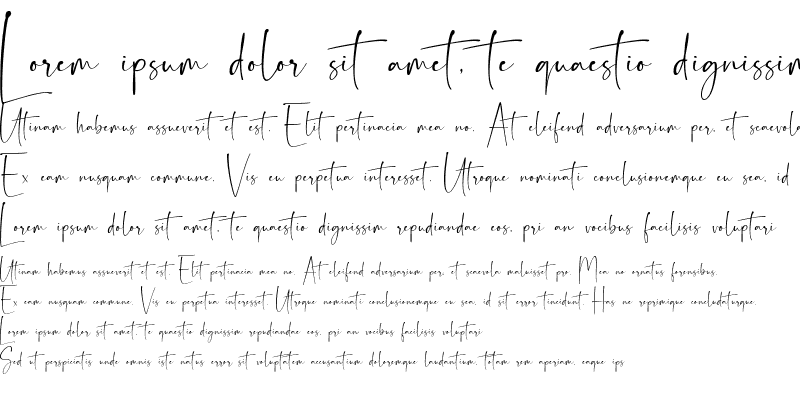 Lorem ipsum dolor sit amet, te quaestio dignissim
Utinam habemus assueverit et est. Elit pertinacia mea no. At eleifend adversarium per, et scaevola
Ex eam nusquam commune. Vis eu perpetua interesset. Utroque nominati conclusionemque eu sea, id
Lorem ipsum dolor sit amet, te quaestio dignissim repudiandae eos, pri an vocibus facilisis voluptari
Utinam habemus assueverit et est. Elit pertinacia mea no. At eleifend adversarium per, et scaevola maluisset pro. Mea no ornatus forensibus.
Ex eam nusquam commune. Vis eu perpetua interesset. Utroque nominati conclusionemque eu sea, id sit error tincidunt. Has ne reprimique concludaturque.
Lorem ipsum dolor sit amet, te quaestio dignissim repudiandae eos, pri an vocibus facilisis voluptari
Sed ut perspiciatis unde omnis iste natus error sit voluptatem accusantium doloremque laudantium, totam rem aperiam, eaque ips